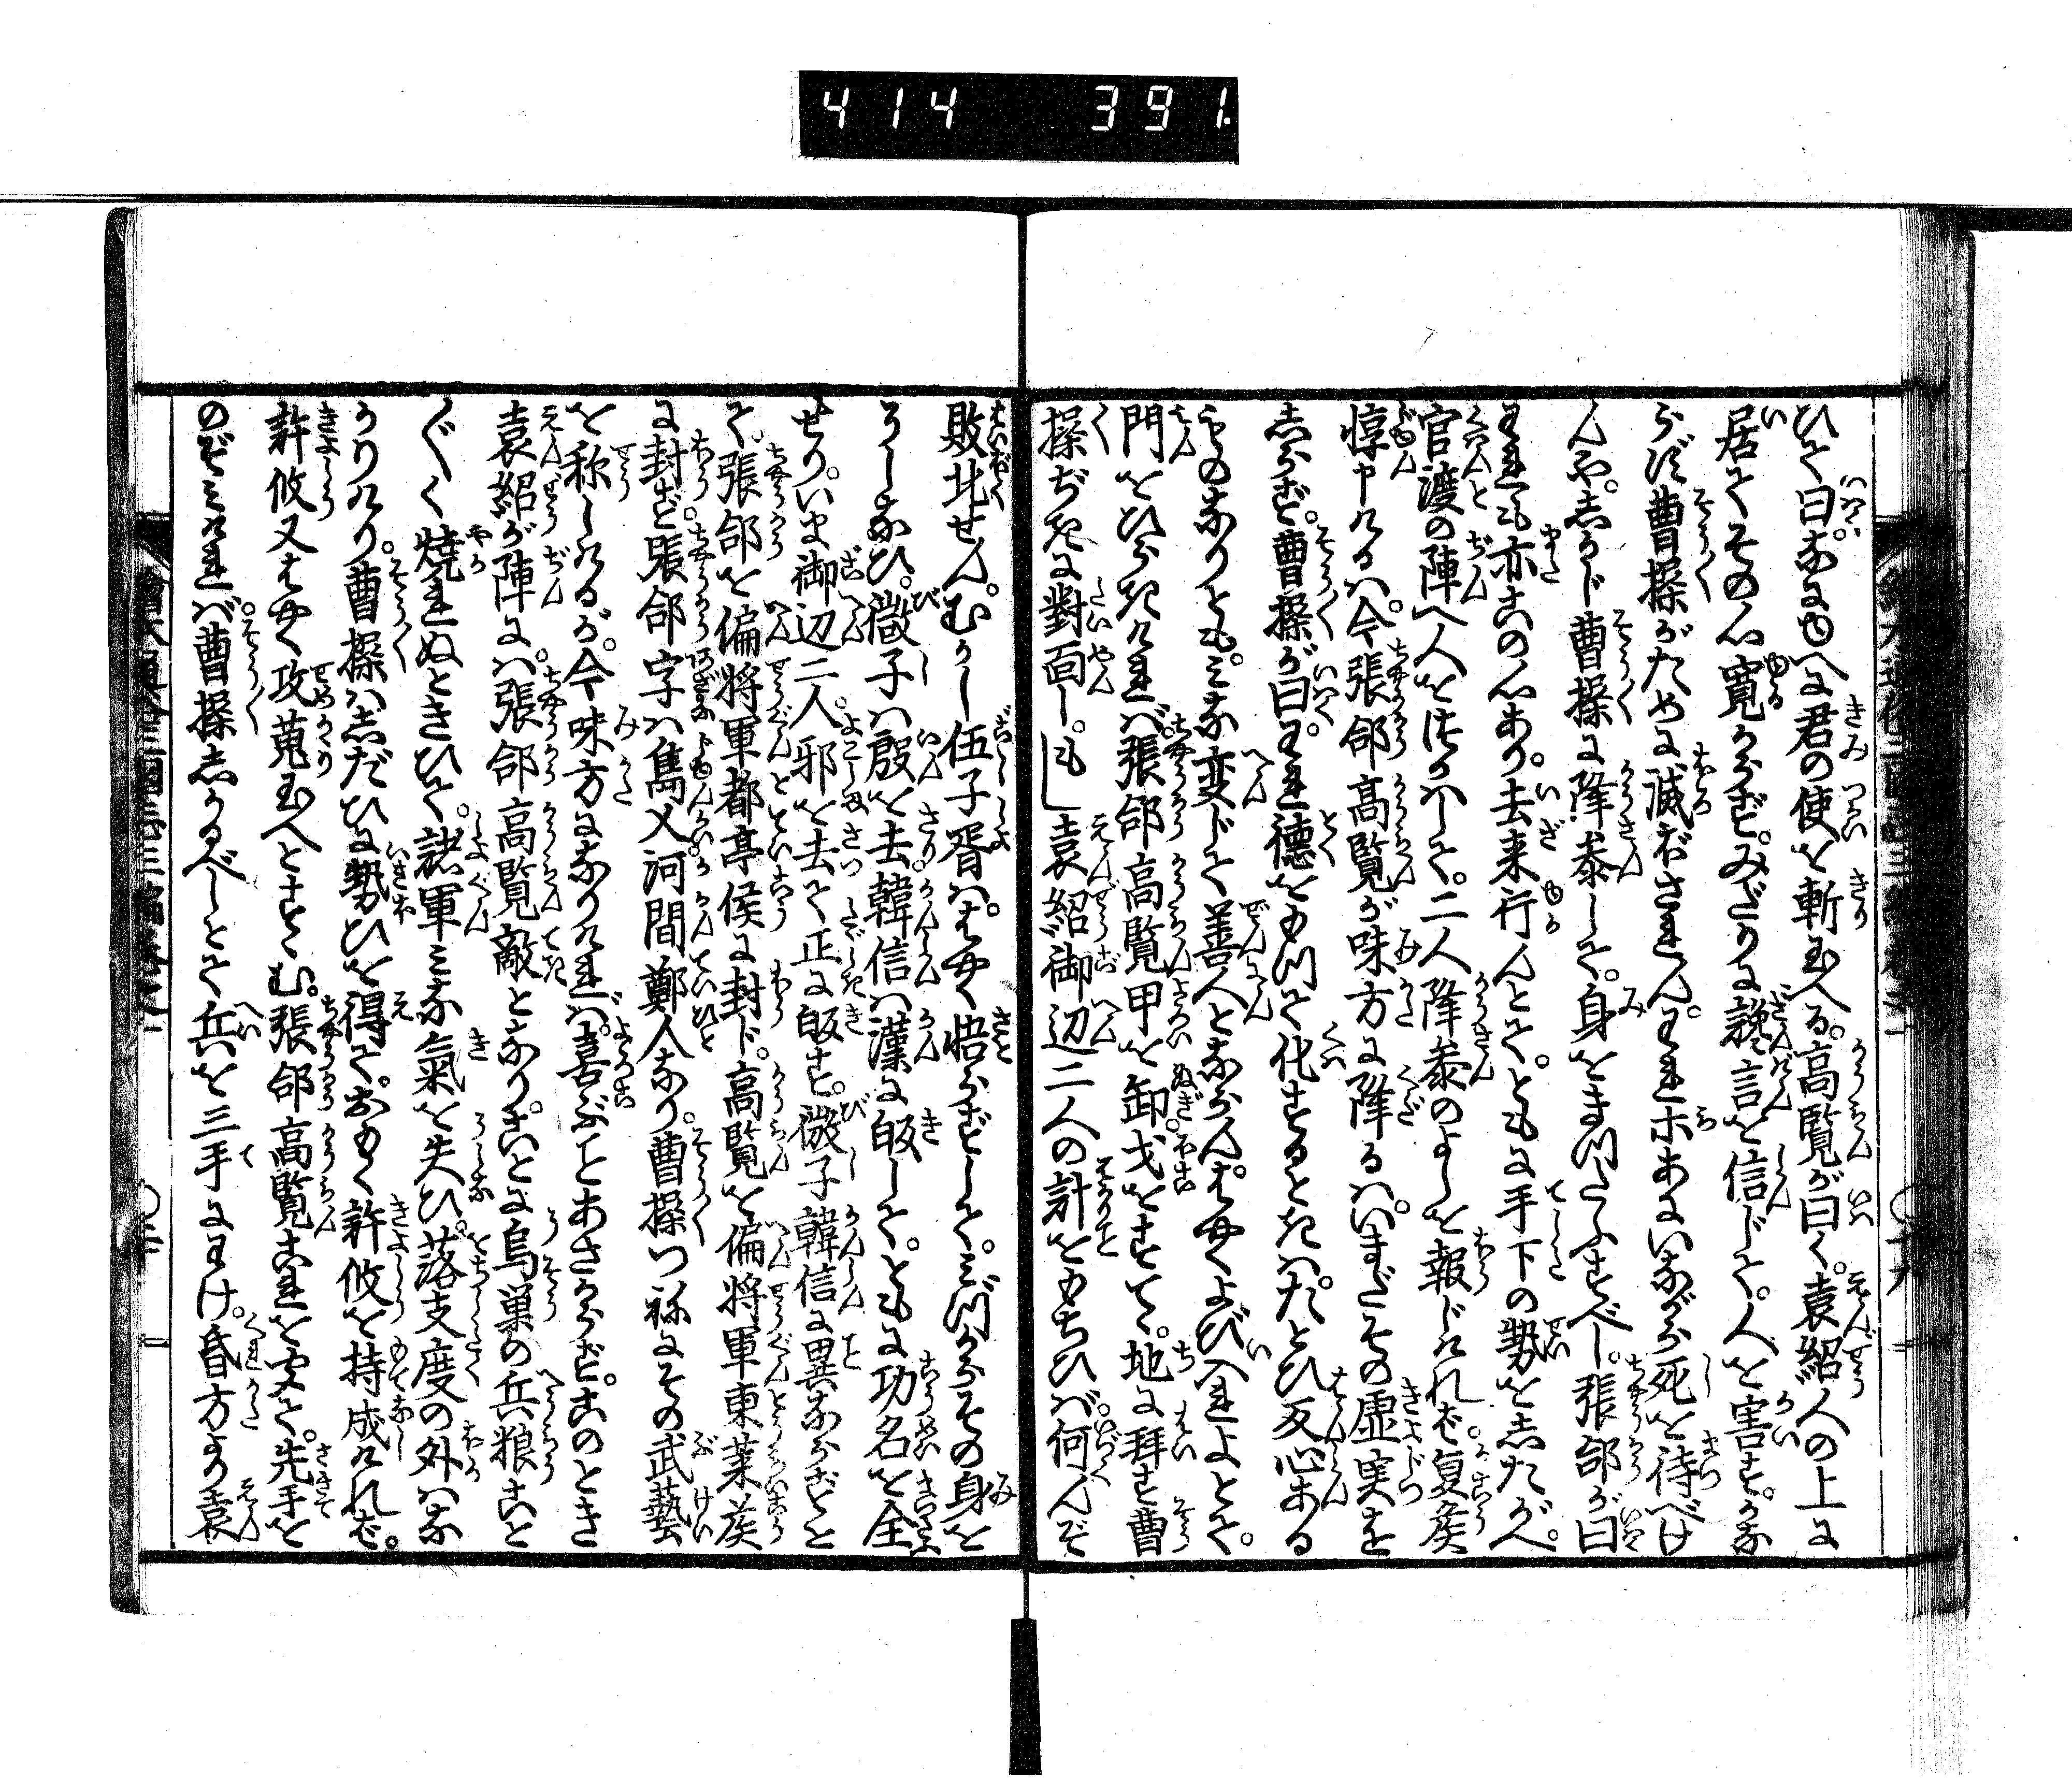 414 391
ひて曰。なにゆへに君の使を斬玉へる。高覧が曰く。袁紹人の上に
居てその心寛からず。みだりに讒言を信じて。人を害す。かな
らず曹操がために滅ぼされん。われホあにいながら死を待べけ
んや。しかじ曹操に降参して。身をまつたふすべし。張郃が曰
われも亦この心あり。去来行んとて。ともに手下の勢をしたがへ。
官渡の陣へ人をはつかはして。二人降参のよしを報じければ。夏侯
惇申けるハ。今張郃高覧が味方に降るハ。いまだその虚実を
しらず。曹操が曰。われ徳をもつて化するときハ。たとひ反心ある
ものなりとも。みな変じて善人とならん。はやくよび入れよとて。
門をひらきければ。張郃高覧甲を卸。戈をすてて。地に拝す曹
操ぢきに對面し。もし袁紹御辺二人の計をもちひば。何んぞ
敗北せん。むかし伍子胥ハ。はやく悟らずして。みづからその身を
うしなひ。微子ハ殷を去。韓信ハ漢に皈して。ともに功名を全
せり。いま御辺二人。邪を去て正に皈す。微子韓信に異ならずと
て。張郃を偏将軍都亭侯に封ド。高覧を偏将軍東莱侯
に封ず。張郃字ハ雋乂河間鄭人なり。曹操つねにその武藝
を称しけるが。今味方になりければ。喜ぶことあさからず。このとき
袁紹が陣にハ。張郃高覧敵となり。ことに烏巣の兵粮こと
ぐく焼れぬときひて。諸軍みな氣を失ひ。落支度の外ハな
かりけり。曹操ハしだひに勢ひを得て。おもく許攸を持成ければ。
許攸又はやく攻蒐玉へとすすむ。張郃高覧これを聞て。先手を
のぞみければ。曹操しかるべしとて兵を三手にわけ。昏方より袁